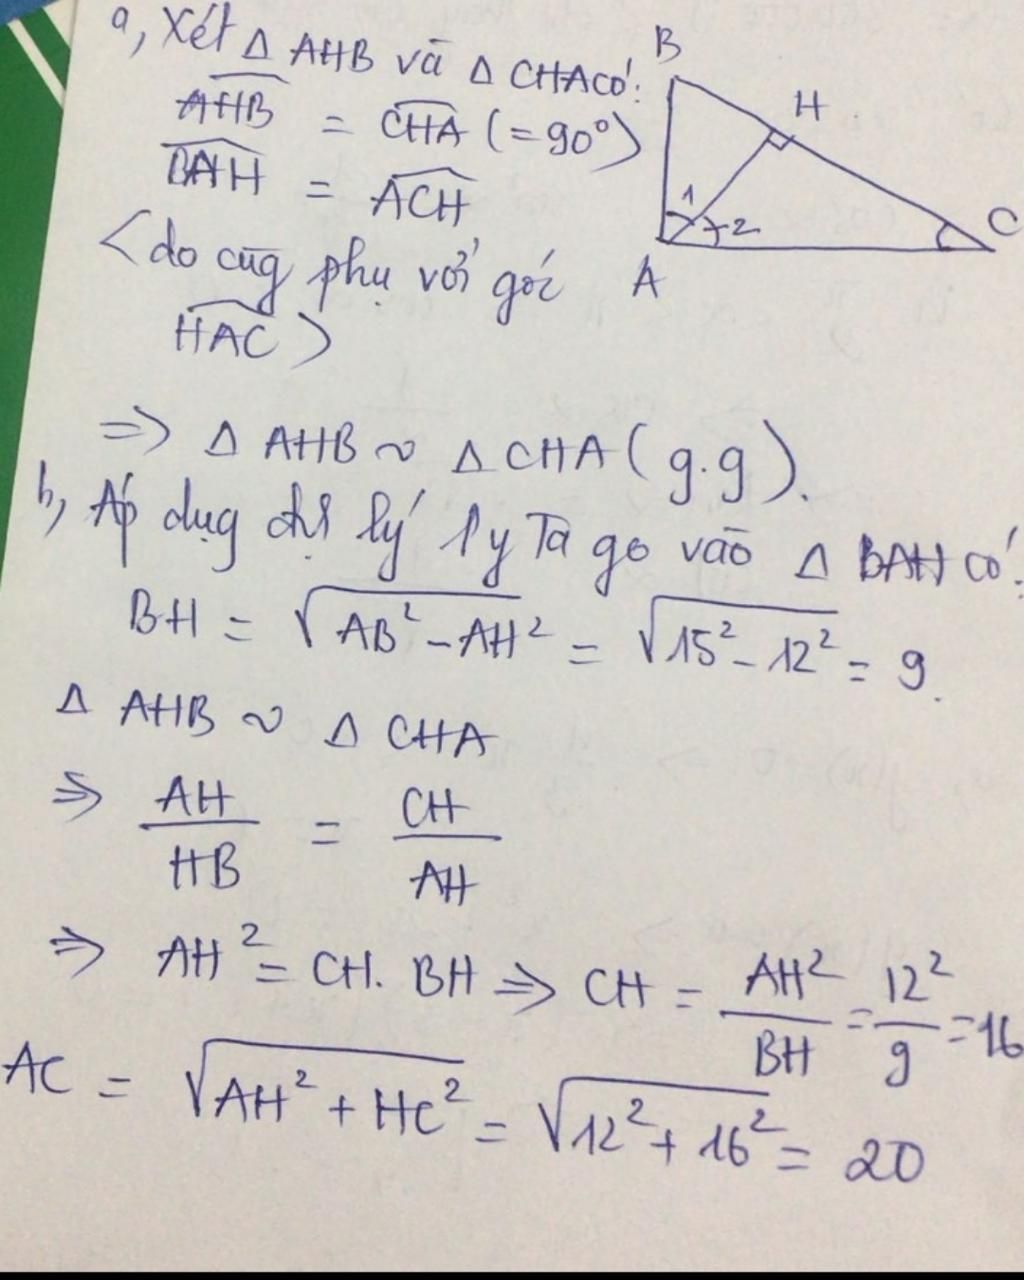 a, Xét Δ AHB và Δ CHA có:
AHB = CHA (= 90°)
BAH = ACH
<do cũg phụ với góc
HAC>
B
H
1
2
C
A
=> Δ AHB ∽ Δ CHA (g.g).
b, Áp dụg lý Py Ta go vào Δ BAH có:
BH = √AB² - AH² = √15² - 12² = 9.
Δ AHB ∽ Δ CHA
=> AH/HB = CH/AH
=> AH² = CH. BH => CH = AH²/BH = 12²/9 = 16
AC = √AH² + HC² = √12² + 16² = 20